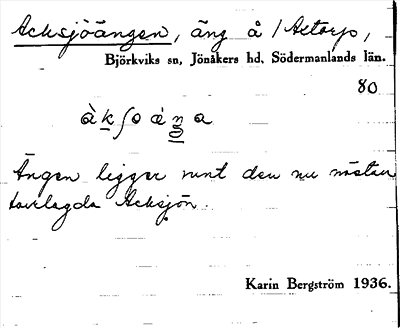 Acksjöängen, äng å /Aetorp,
Björkviks sn, Jönåkers hd, Södermanlands län.
80
àk∫o áŋa
Ängen ligger runt den nu nästan
torrlagda Acksjön.
Karin Bergström 1936.